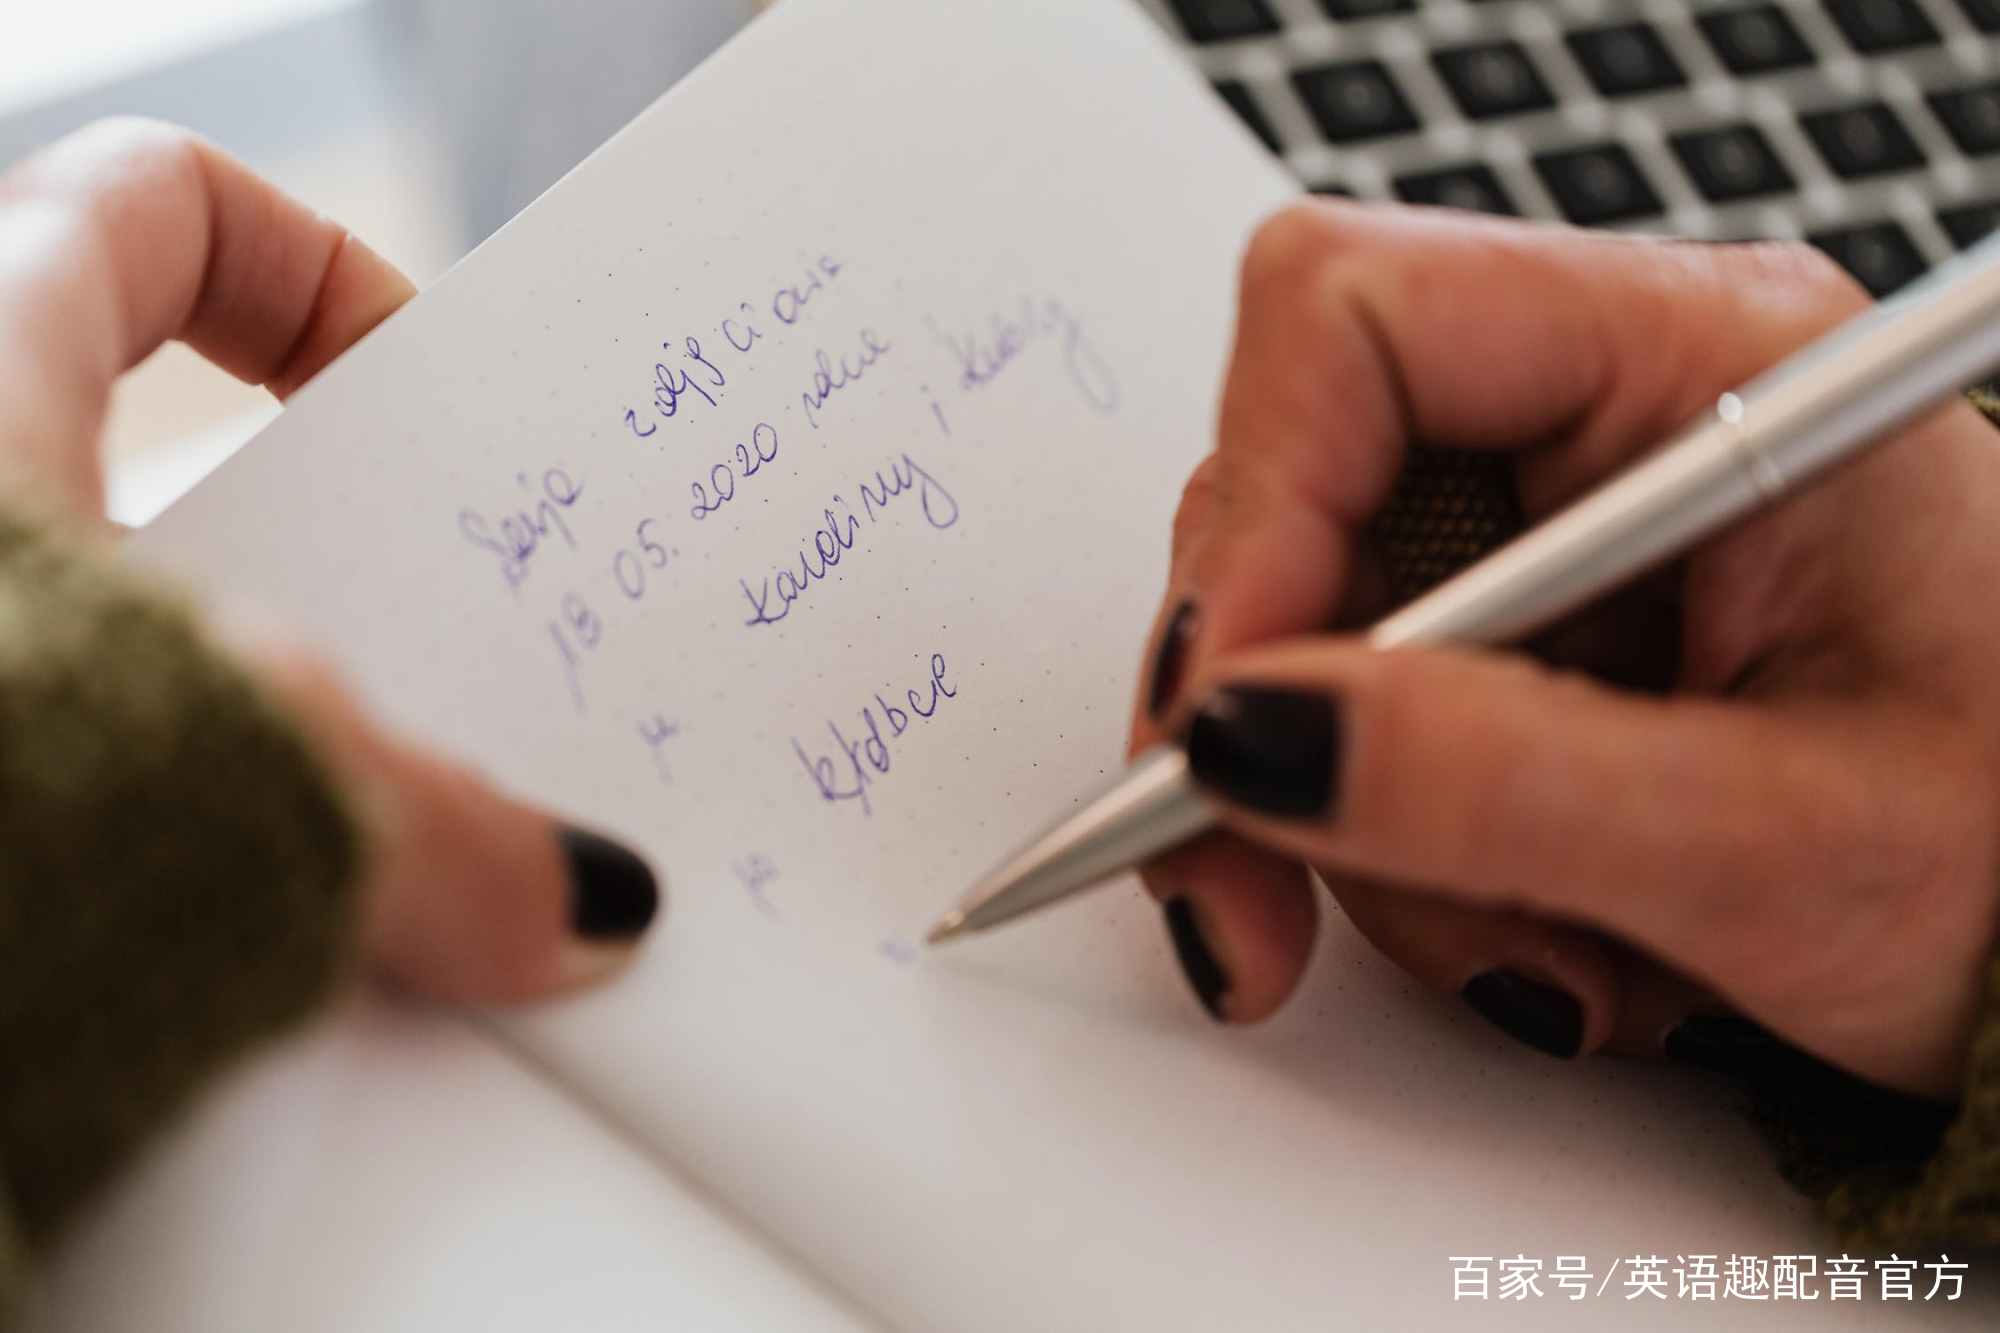 Sesja zdjęciowa
18.05.2020 roku
Karoliny i Kuby
w
w
百家号/英语趣配音官方